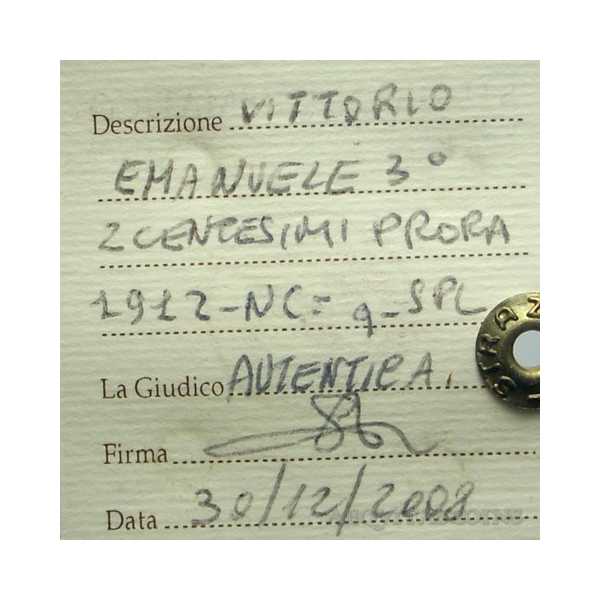 Descrizione VITTORIO
EMANUELE 3°
2 CENTESIMI PRORA
1912-NC= q-SPL
La Giudico AUTENTICA.
Firma
Data 30/12/2008